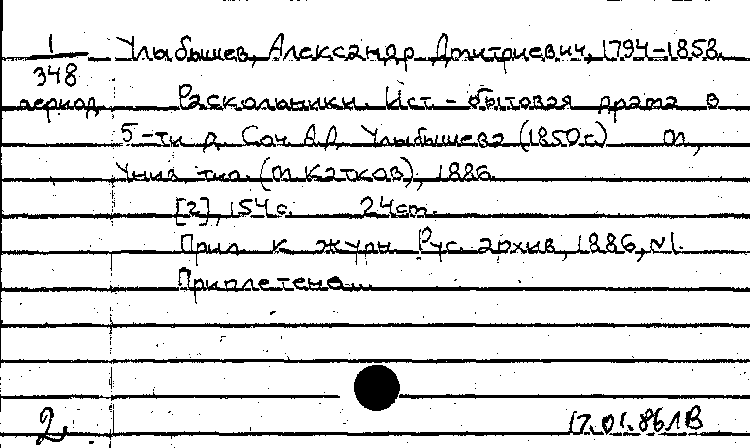 1
348
период
Улыбышев, Александр Дмитриевич, 1794-1858.
Раскольники. Ист.-бытовая драма в
5-ти д. Соч. А.Д. Улыбышева (1850 г.) М.,
Унив. тип. (М. Катков), 1886.
[2], 154 с. 24 cm.
Прил. к журн. Рус. архив, 1886, №1.
Приплетена...
2.
17.01.86 ЛВ